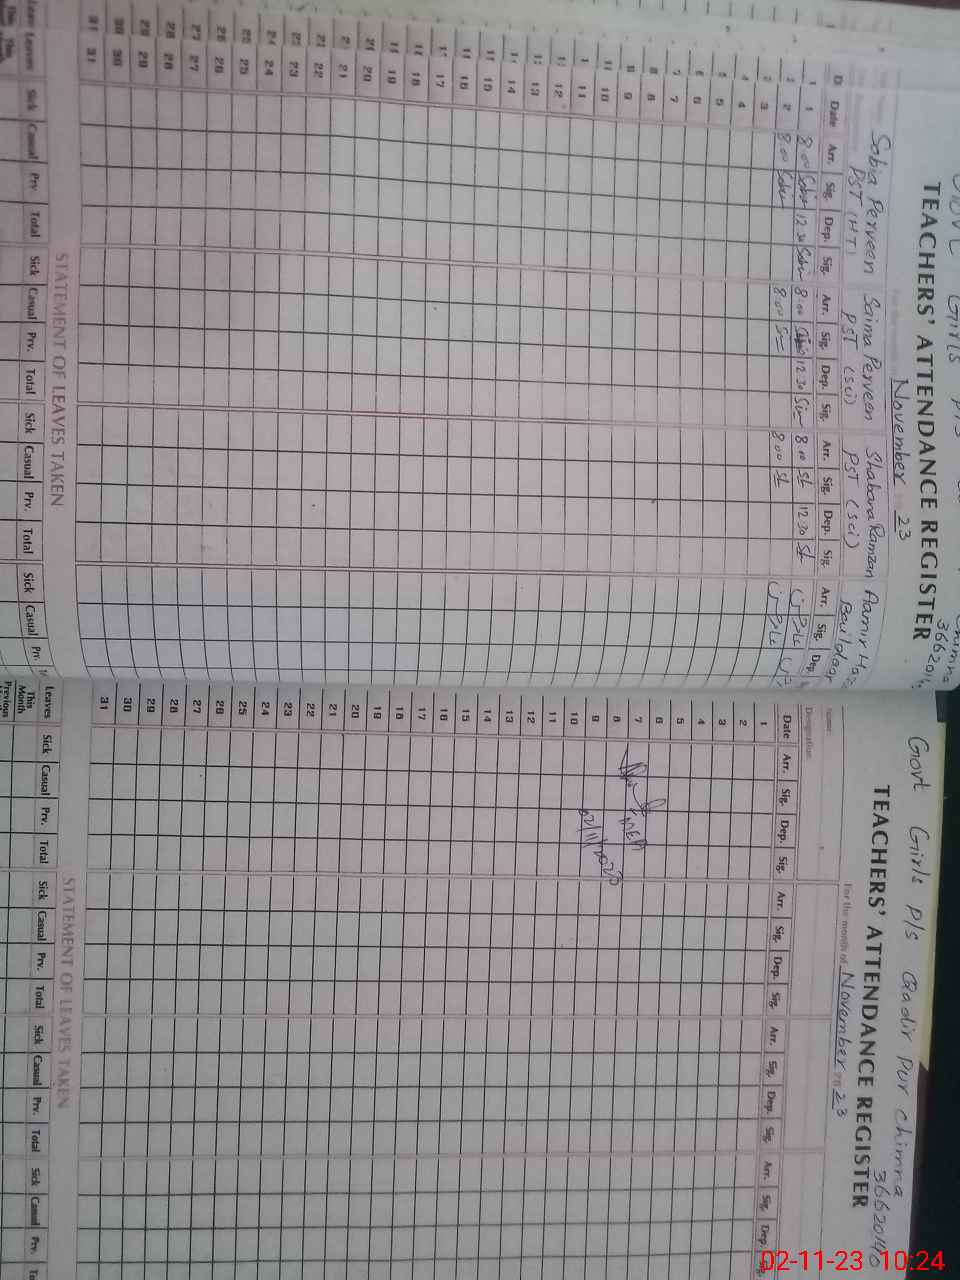 Girls P/S Chimna
36620140
TEACHERS' ATTENDANCE REGISTER
November 23
Sobia Perveen Saima Perveen Shabana Ramzan Aamir
PST (HT) PST (sci) PST (sci)
Date Arr. Sig. Dep. Sig. Arr. Sig. Dep. Sig. Arr. Sig. Dep. Sig. Arr. Sig. Dep.
1 8:00 12:30 8:00 12:30 8:00 12:30
2 8:00 8:00 8:00
3
4
5
6
7
8
9
10
11
12
13
14
15
16
17
18
19
20
21
22
23
24
25
26
27
28
29
30
31
STATEMENT OF LEAVES TAKEN
Leaves Sick Casual Prv Total Sick Casual Prv. Total Sick Casual Prv. Total Sick Casual Prv.
Govt Girls P/S Qadir Pur Chimna
36620140
TEACHERS' ATTENDANCE REGISTER
For the month of November 20 23
Name
Designation
Date Arr. Sig. Dep. Sig. Arr. Sig. Dep. Sig. Arr. Sig. Dep. Sig. Arr. Sig. Dep. Sig.
1
2
3
4
5
6
7
8
9
10
11
12
13
14
15
16
17
18
19
20
21
22
23
24
25
26
27
28
29
30
31
02/11/2023
STATEMENT OF LEAVES TAKEN
Leaves Sick Casual Prv. Total Sick Casual Prv. Total Sick Casual Prv. Total Sick Casual Prv.
This Month
Previous
02-11-23 10:24